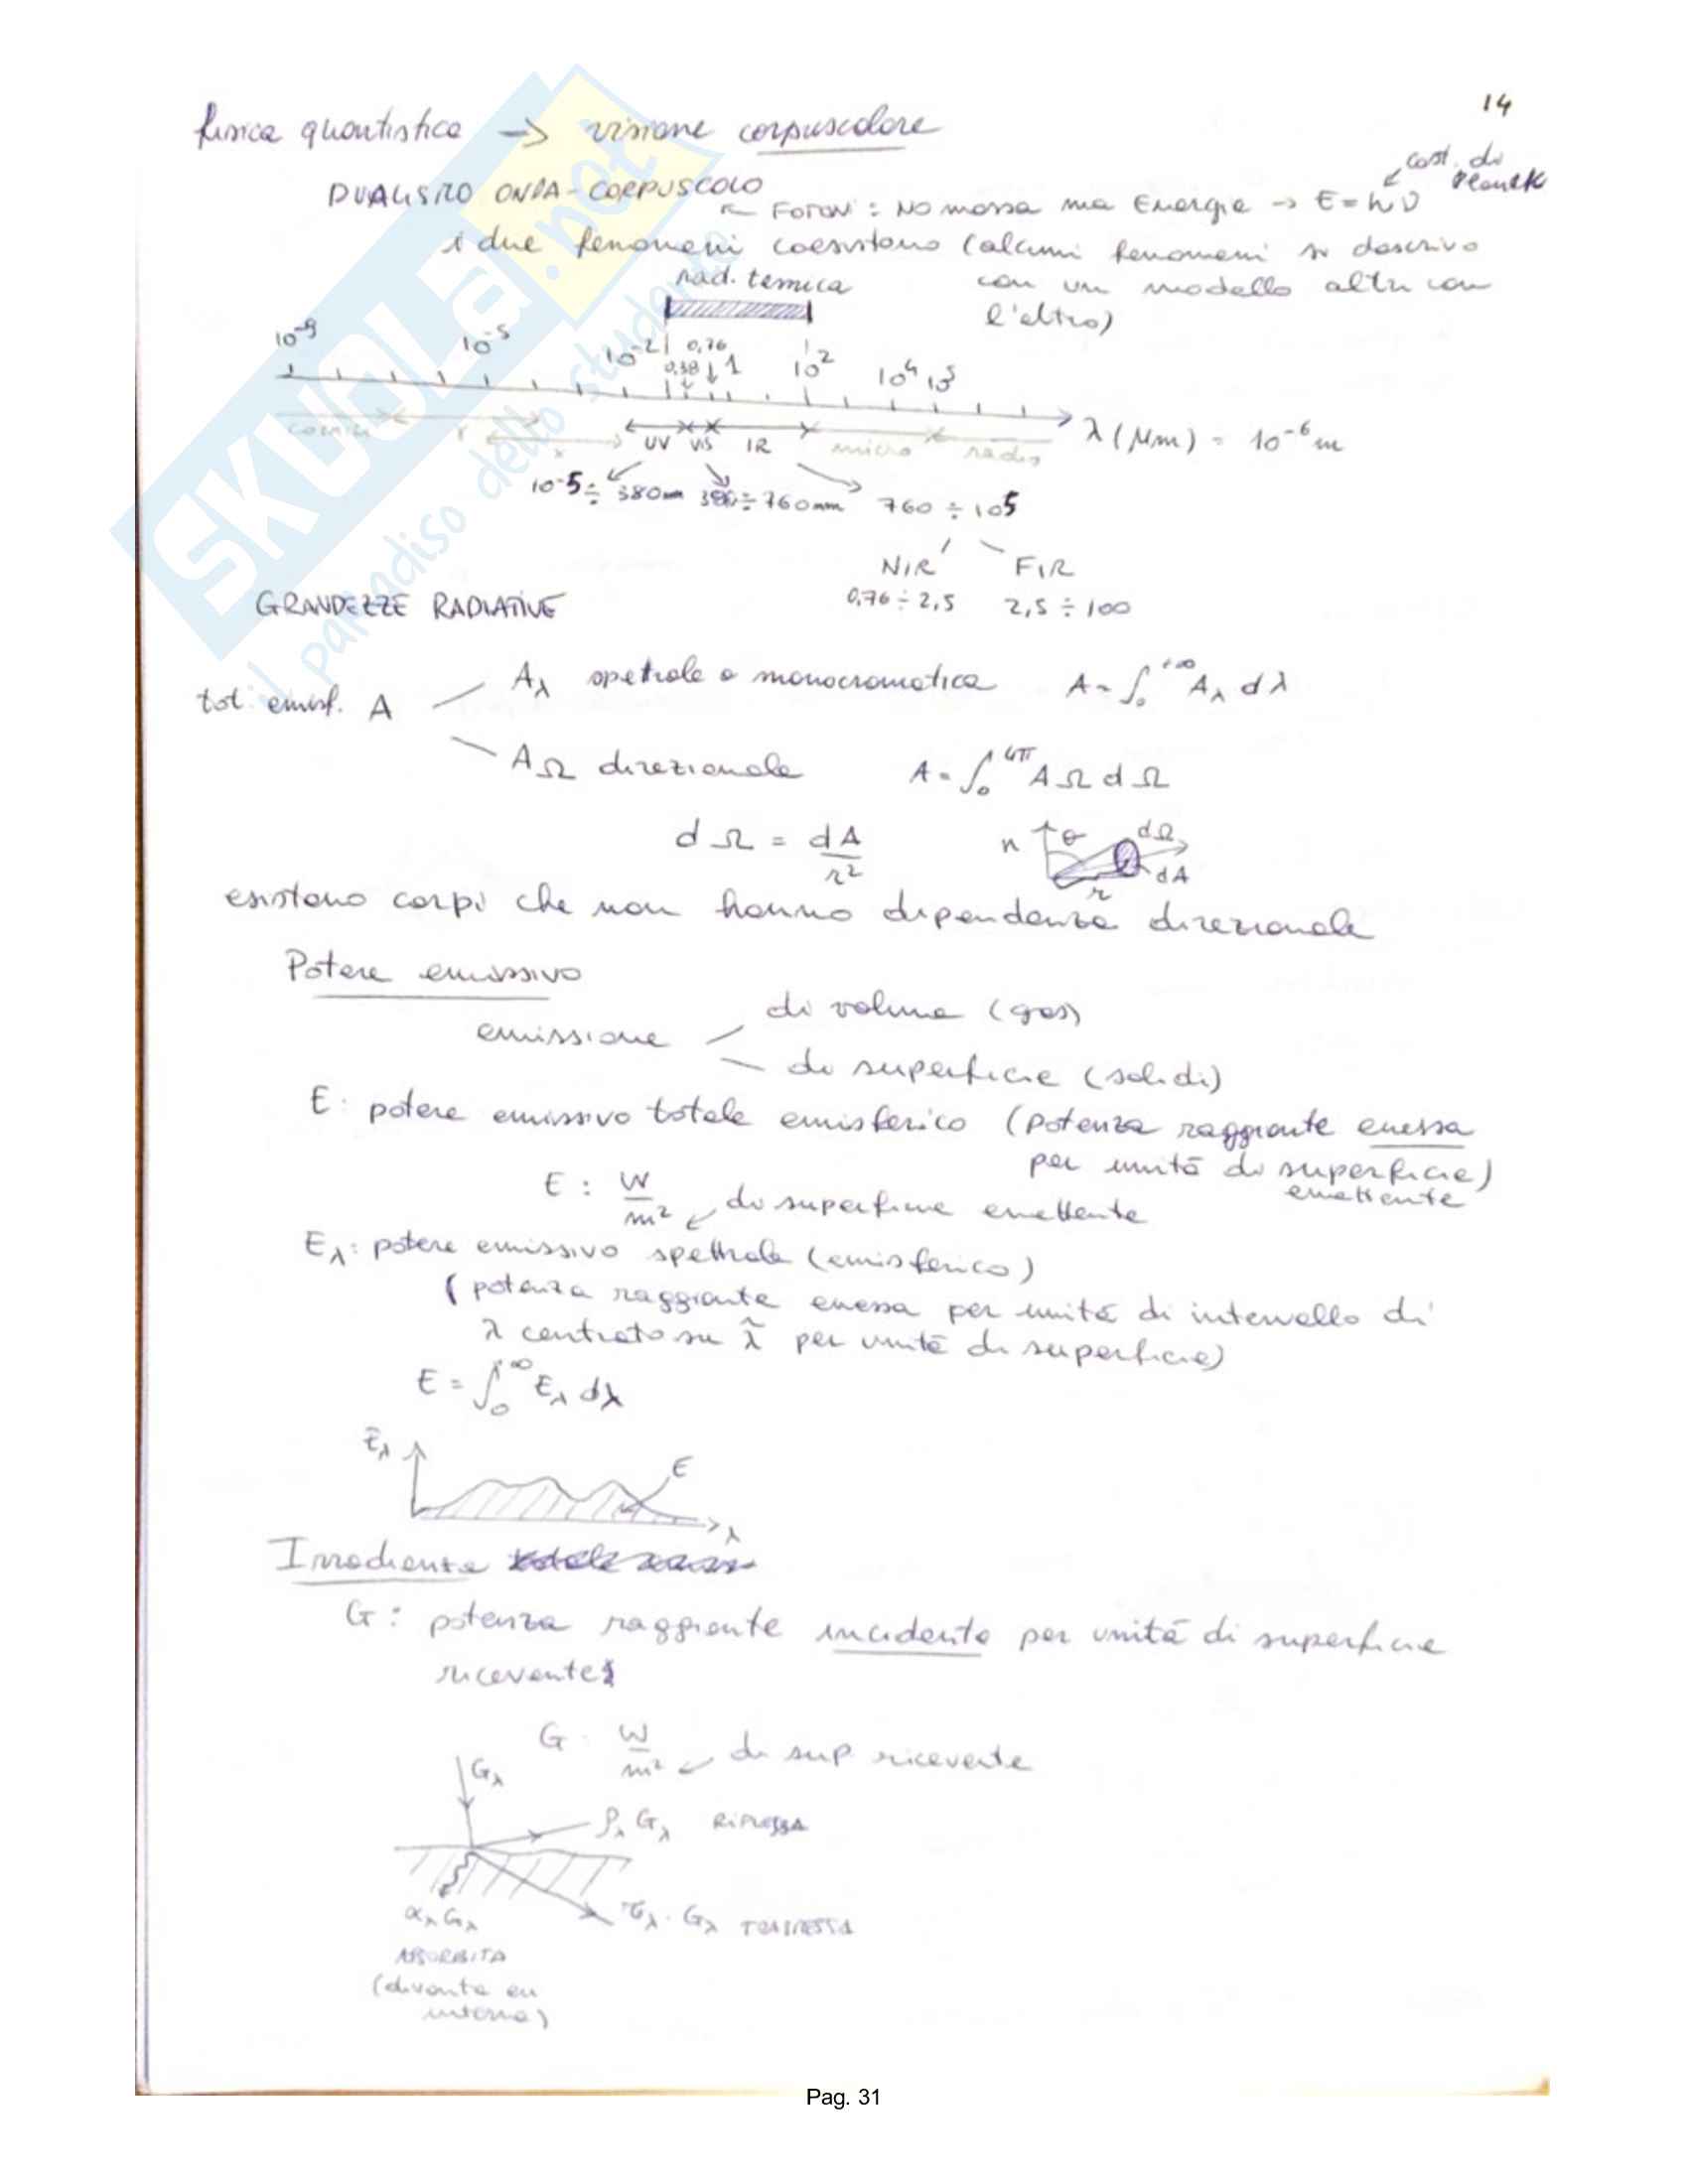 14
fisica quantistica → visione corpuscolare
cost. di Planck
DUALISMO ONDA-CORPUSCOLO
← FOTONI : NO massa ma Energia → E = hν
i due fenomeni coesistono (alcuni fenomeni si descrivo
con un modello altri con
l'altro)
rad. termica
10⁻⁹ 10⁻⁵ 10⁻² 0,38 0,76 1 10² 10⁴ 10⁵
λ (μm) = 10⁻⁶ m
cosmici γ x UV VIS IR micro radio
10⁻⁵ ÷ 380nm 380 ÷ 760nm 760 ÷ 10⁵
NIR FIR
0,76 ÷ 2,5 2,5 ÷ 100
GRANDEZZE RADIATIVE
tot. emisf. A
Aλ spetrale o monocromatica A = ∫₀^+∞ Aλ dλ
AΩ direzionale A = ∫₀^4π AΩ dΩ
dΩ = dA / r²
n θ dΩ dA r
esistono corpi che non hanno dipendenza direzionale
Potere emissivo
emissione
di volume (gas)
di superficie (solidi)
E: potere emissivo totale emisferico (potenza raggiante emessa
per unità di superficie)
emettente
E : W/m² ↙ di superficie emettente
Eλ: potere emissivo spettrale (emisferico)
(potenza raggiante emessa per unità di intervallo di
λ centrato su λ̃ per unità di superficie)
E = ∫₀^∞ Eλ dλ
Eλ E λ
Irradianza
G: potenza raggiante incidente per unità di superficie
ricevente
G : W/m² ↙ di sup ricevente
Gλ
ρλ Gλ RIFLESSA
αλ Gλ
τλ · Gλ TRASMESSA
ASSORBITA
(diventa en
interna)
SKUOLA.net
il paradiso dello studente
Pag. 31